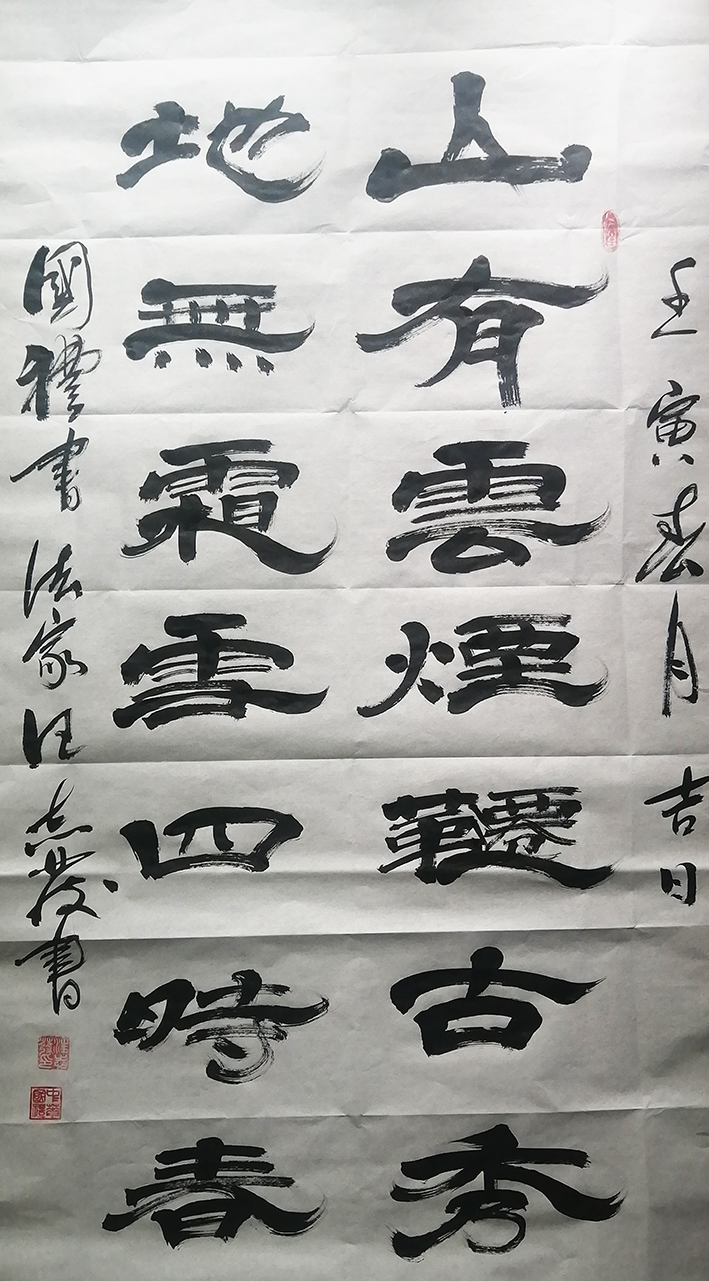 壬寅春月吉日
山有雲煙韆古秀
地無霜雪四時春
國禮書法家汪志發書